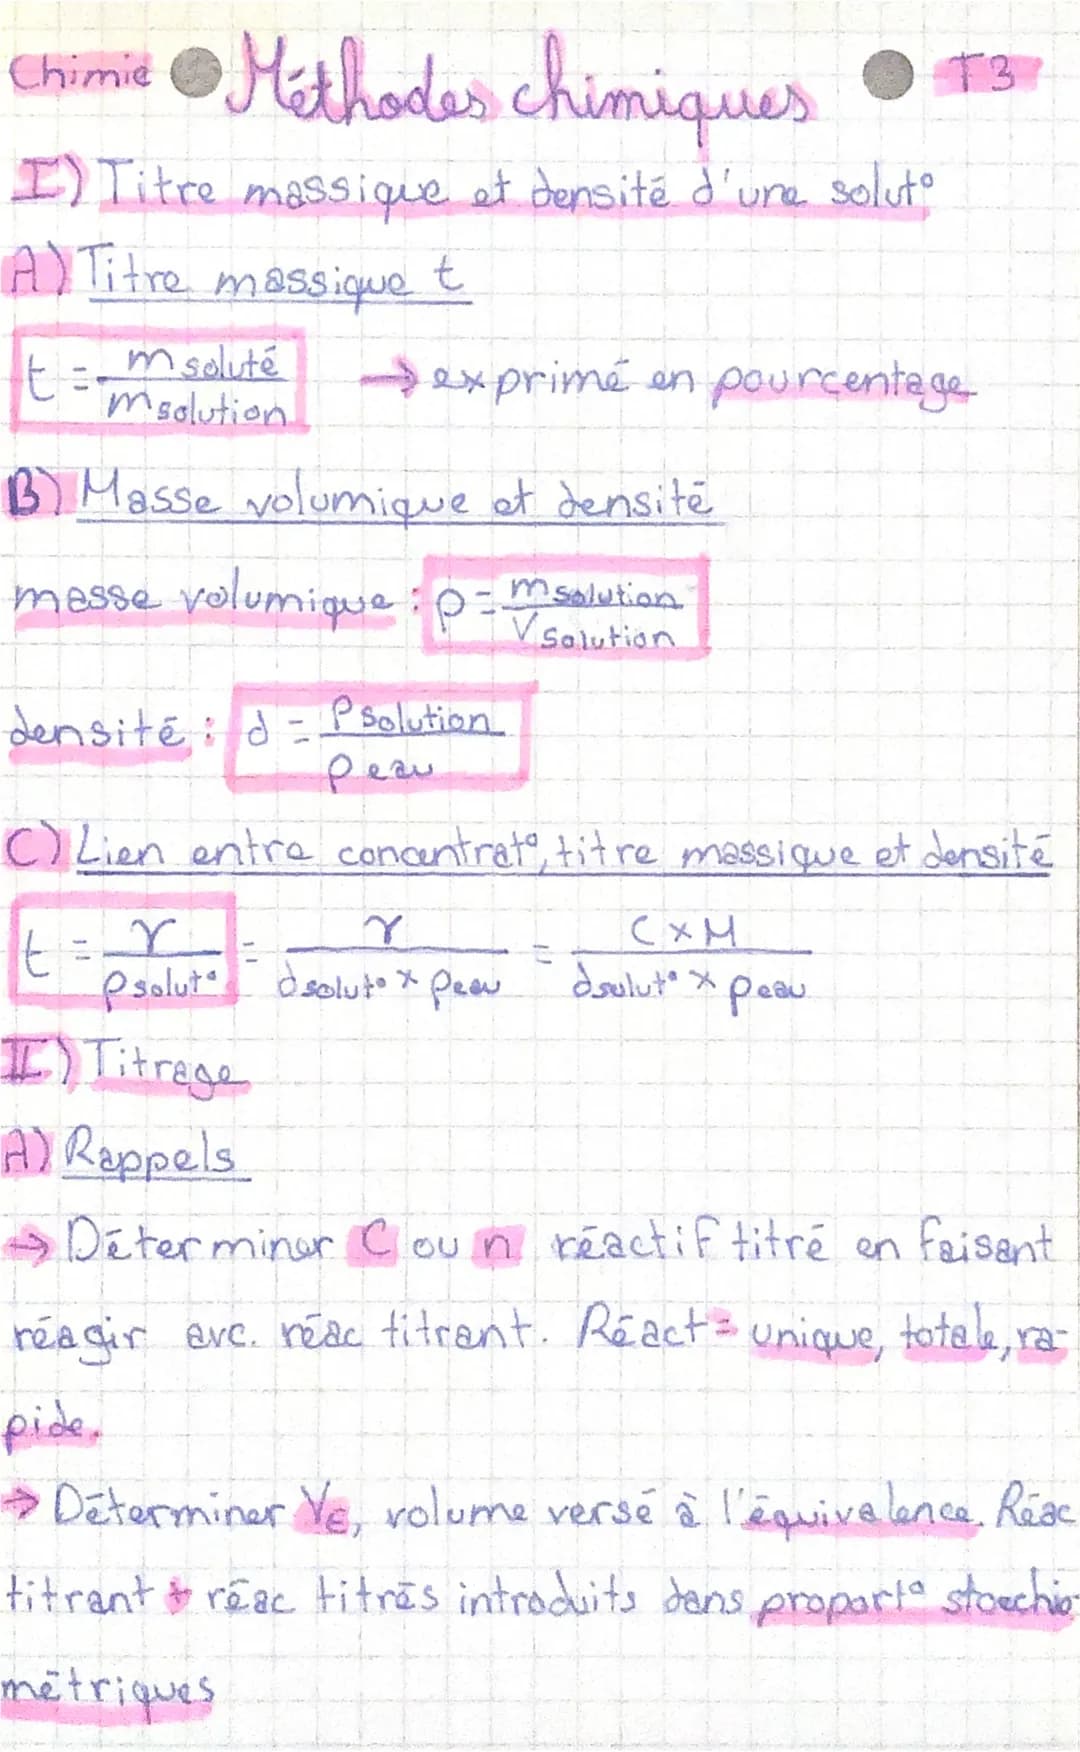 Chimie Méthodes chimiques T3
I) Titre massique et densité d'une solut°
A) Titre massique t
t = m soluté / m solution → exprimé en pourcentage
B) Masse volumique et densité
masse volumique : ρ = m solution / V solution
densité : d = ρ solution / ρ eau
C) Lien entre concentrat°, titre massique et densité
t = γ / ρ solut° = γ / d solut° × ρ eau = C × M / d solut° × ρ eau
II) Titrage
A) Rappels
→ Déterminer C ou n réactif titré en faisant
réagir avc. réac titrant. Réact = unique, totale, ra-
pide.
→ Déterminer VE, volume versé à l'équivalence. Réac
titrant + réac titrés introduits dans proport° stoechio-
métriques